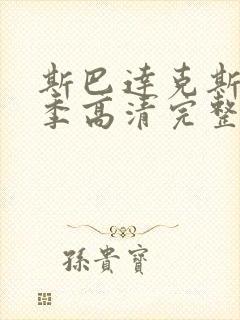 斯巴達克斯
季高清完整
孫貴寶